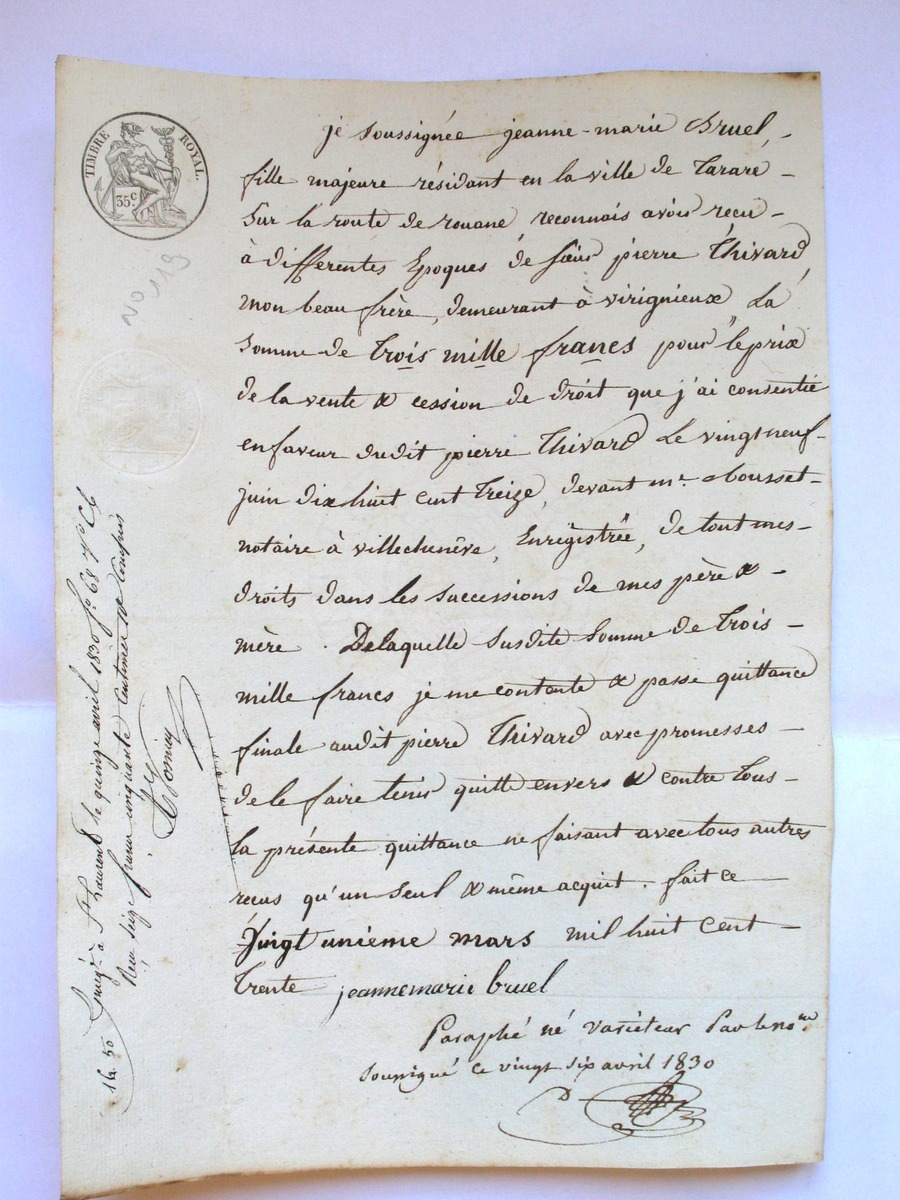 TIMBRE ROYAL.
35 c.
No 19
je soussignée jeanne-marie Bruel -
fille majeure résidant en la ville de Tarare -
sur la route de rouane reconnais avoir reçu -
à differentes Epoques de Sieur pierre Thivard
mon beau frère, demeurant à virignieux La
somme de Trois mille francs pour le prix
de la vente & cession de droit que j'ai consentie
en faveur dudit pierre Thivard Le vingt neuf -
juin dix huit cent treize, devant me. -
notaire à villechenêve, Enregistrée, de tout mes -
droits dans les successions de mes père & -
mère. De laquelle susdite somme de Trois -
mille francs je me contente & passe quittance
finale audit pierre Thivard avec promesses -
de le faire tenir quitte envers & contre tous -
la présente quittance ne faisant avec tous autres
recus qu'un seul & même acquit. fait ce -
Vingt unieme mars mil huit cent
Trente jeannemarie bruel
Paraphé né variéteur Par le nore
soussigné ce vingt six avril 1830
Enregé. à St Laurent le quinze avril 1830 fo. 68
Reçu seize francs cinquante centimes
16.50